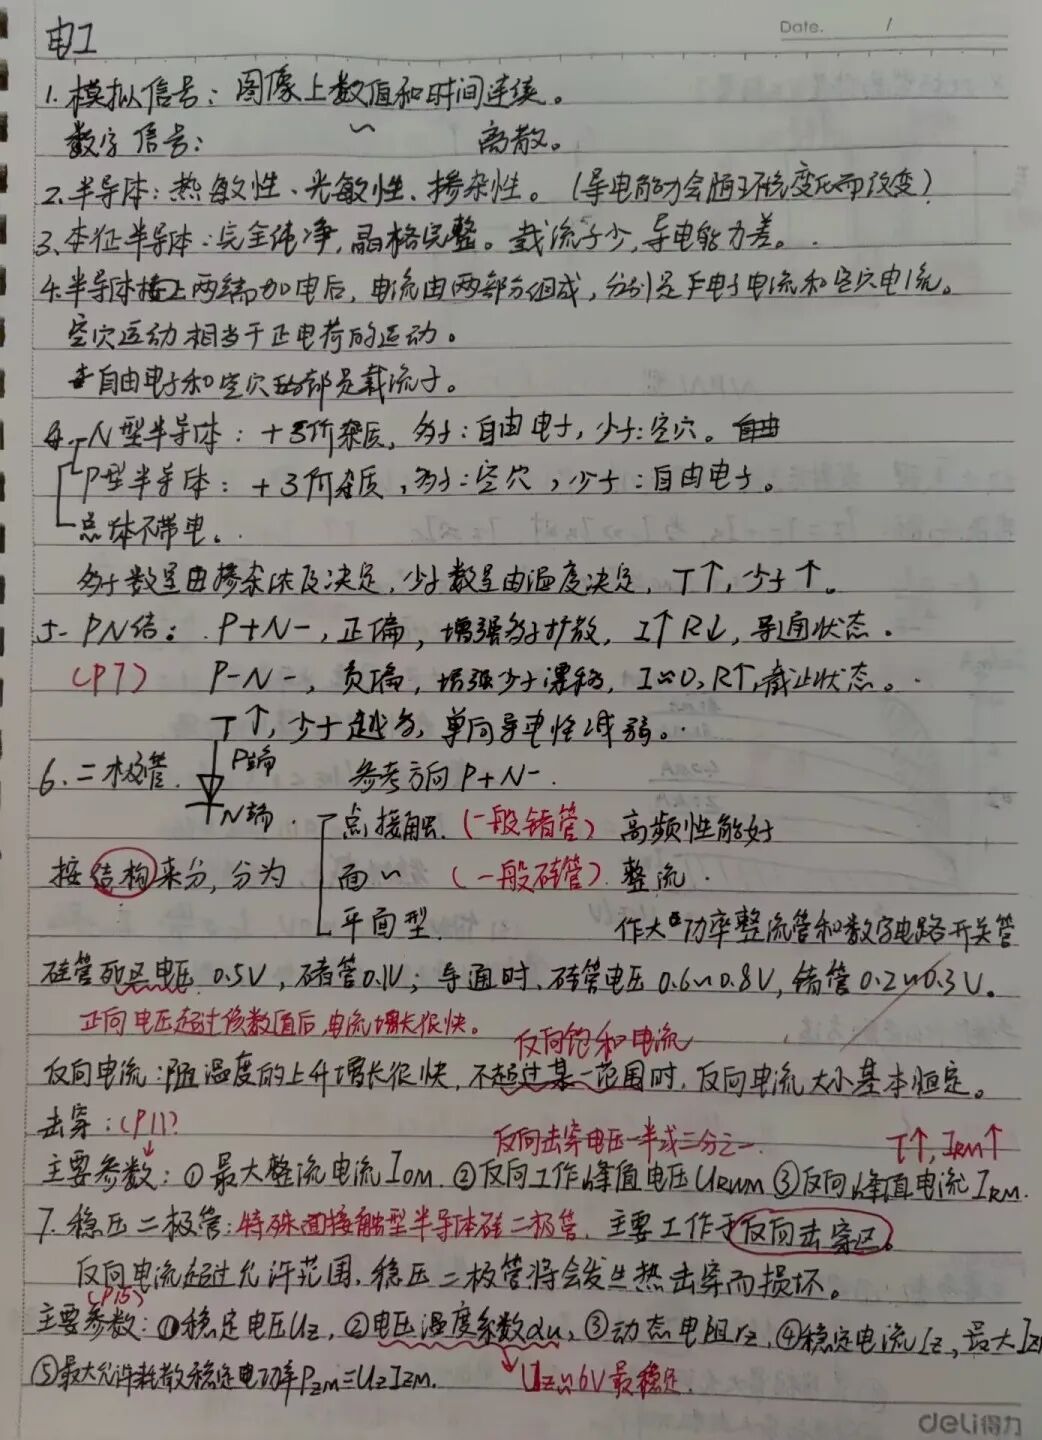 Date. /
电工
1. 模拟信号：图像上数值和时间连续。
数字信号： 〃 离散。
2. 半导体：热敏性、光敏性、掺杂性。（导电能力会随环境变化而改变）
3. 本征半导体：完全纯净，晶格完整。载流子少，导电能力差。
4. 半导体 两端加电后，电流由两部分组成，分别是 电子电流和空穴电流。
空穴运动相当于正电荷的运动。
自由电子和空穴 都是载流子。
N型半导体：+5价杂质，多子：自由电子，少子：空穴。
P型半导体：+3价杂质，多子：空穴，少子：自由电子。
总体不带电。
多子数量由掺杂浓度决定，少子数量由温度决定，T↑，少子↑。
5. PN结： P+N-，正偏，增强多子扩散，I↑R↓，导通状态。
(P7) P-N-，负偏，增强少子漂移，I≈0，R↑，截止状态。
T↑，少子越多，单向导电性减弱。
6. 二极管. P端 参考方向P+N-.
N端.
点接触.（一般锗管）高频性能好
按结构来分，分为 面〃（一般硅管）.整流.
平面型. 作大 功率整流管和数字电路开关管
硅管死区电压0.5V，锗管0.1V；导通时，硅管电压0.6~0.8V，锗管0.2~0.3V。
正向电压超过 数值后，电流增长很快。
反向饱和电流
反向电流：随温度的上升增长很快，不超过某一范围时，反向电流大小基本恒定。
击穿：(P11)?
反向击穿电压一半或三分之二 T↑，IRM↑
主要参数：①最大整流电流IOM. ②反向工作峰值电压URWM ③反向峰值电流IRM.
7. 稳压二极管：特殊面接触型半导体硅二极管，主要工作于反向击穿区。
反向电流超过允许范围，稳压二极管将会发生热击穿而损坏。
(P15)
主要参数：①稳定电压Uz，②电压温度系数αu，③动态电阻rz，④稳定电流Iz，最大
⑤最大允许耗散 功率PZM=UzIZM. Uz≈6V最稳定.
deli得力